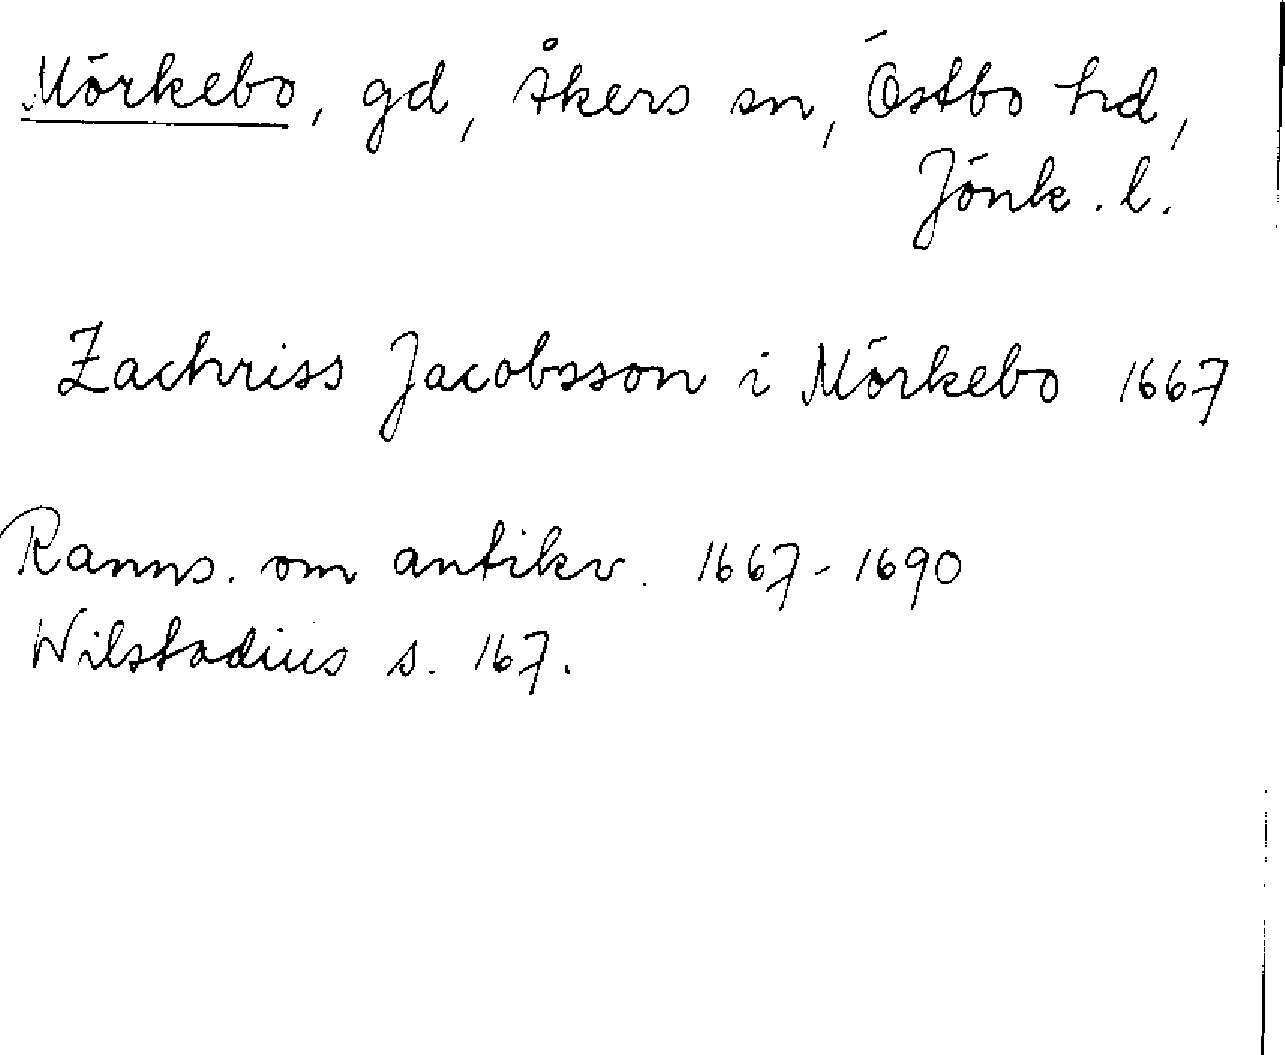 Mörkebo, gd, Åkers sn, Östbo hd,
Jönk. l.
Zachriss Jacobsson i Mörkebo 1667
Ranns. om antikv. 1667-1690
Wilstadius s. 167.